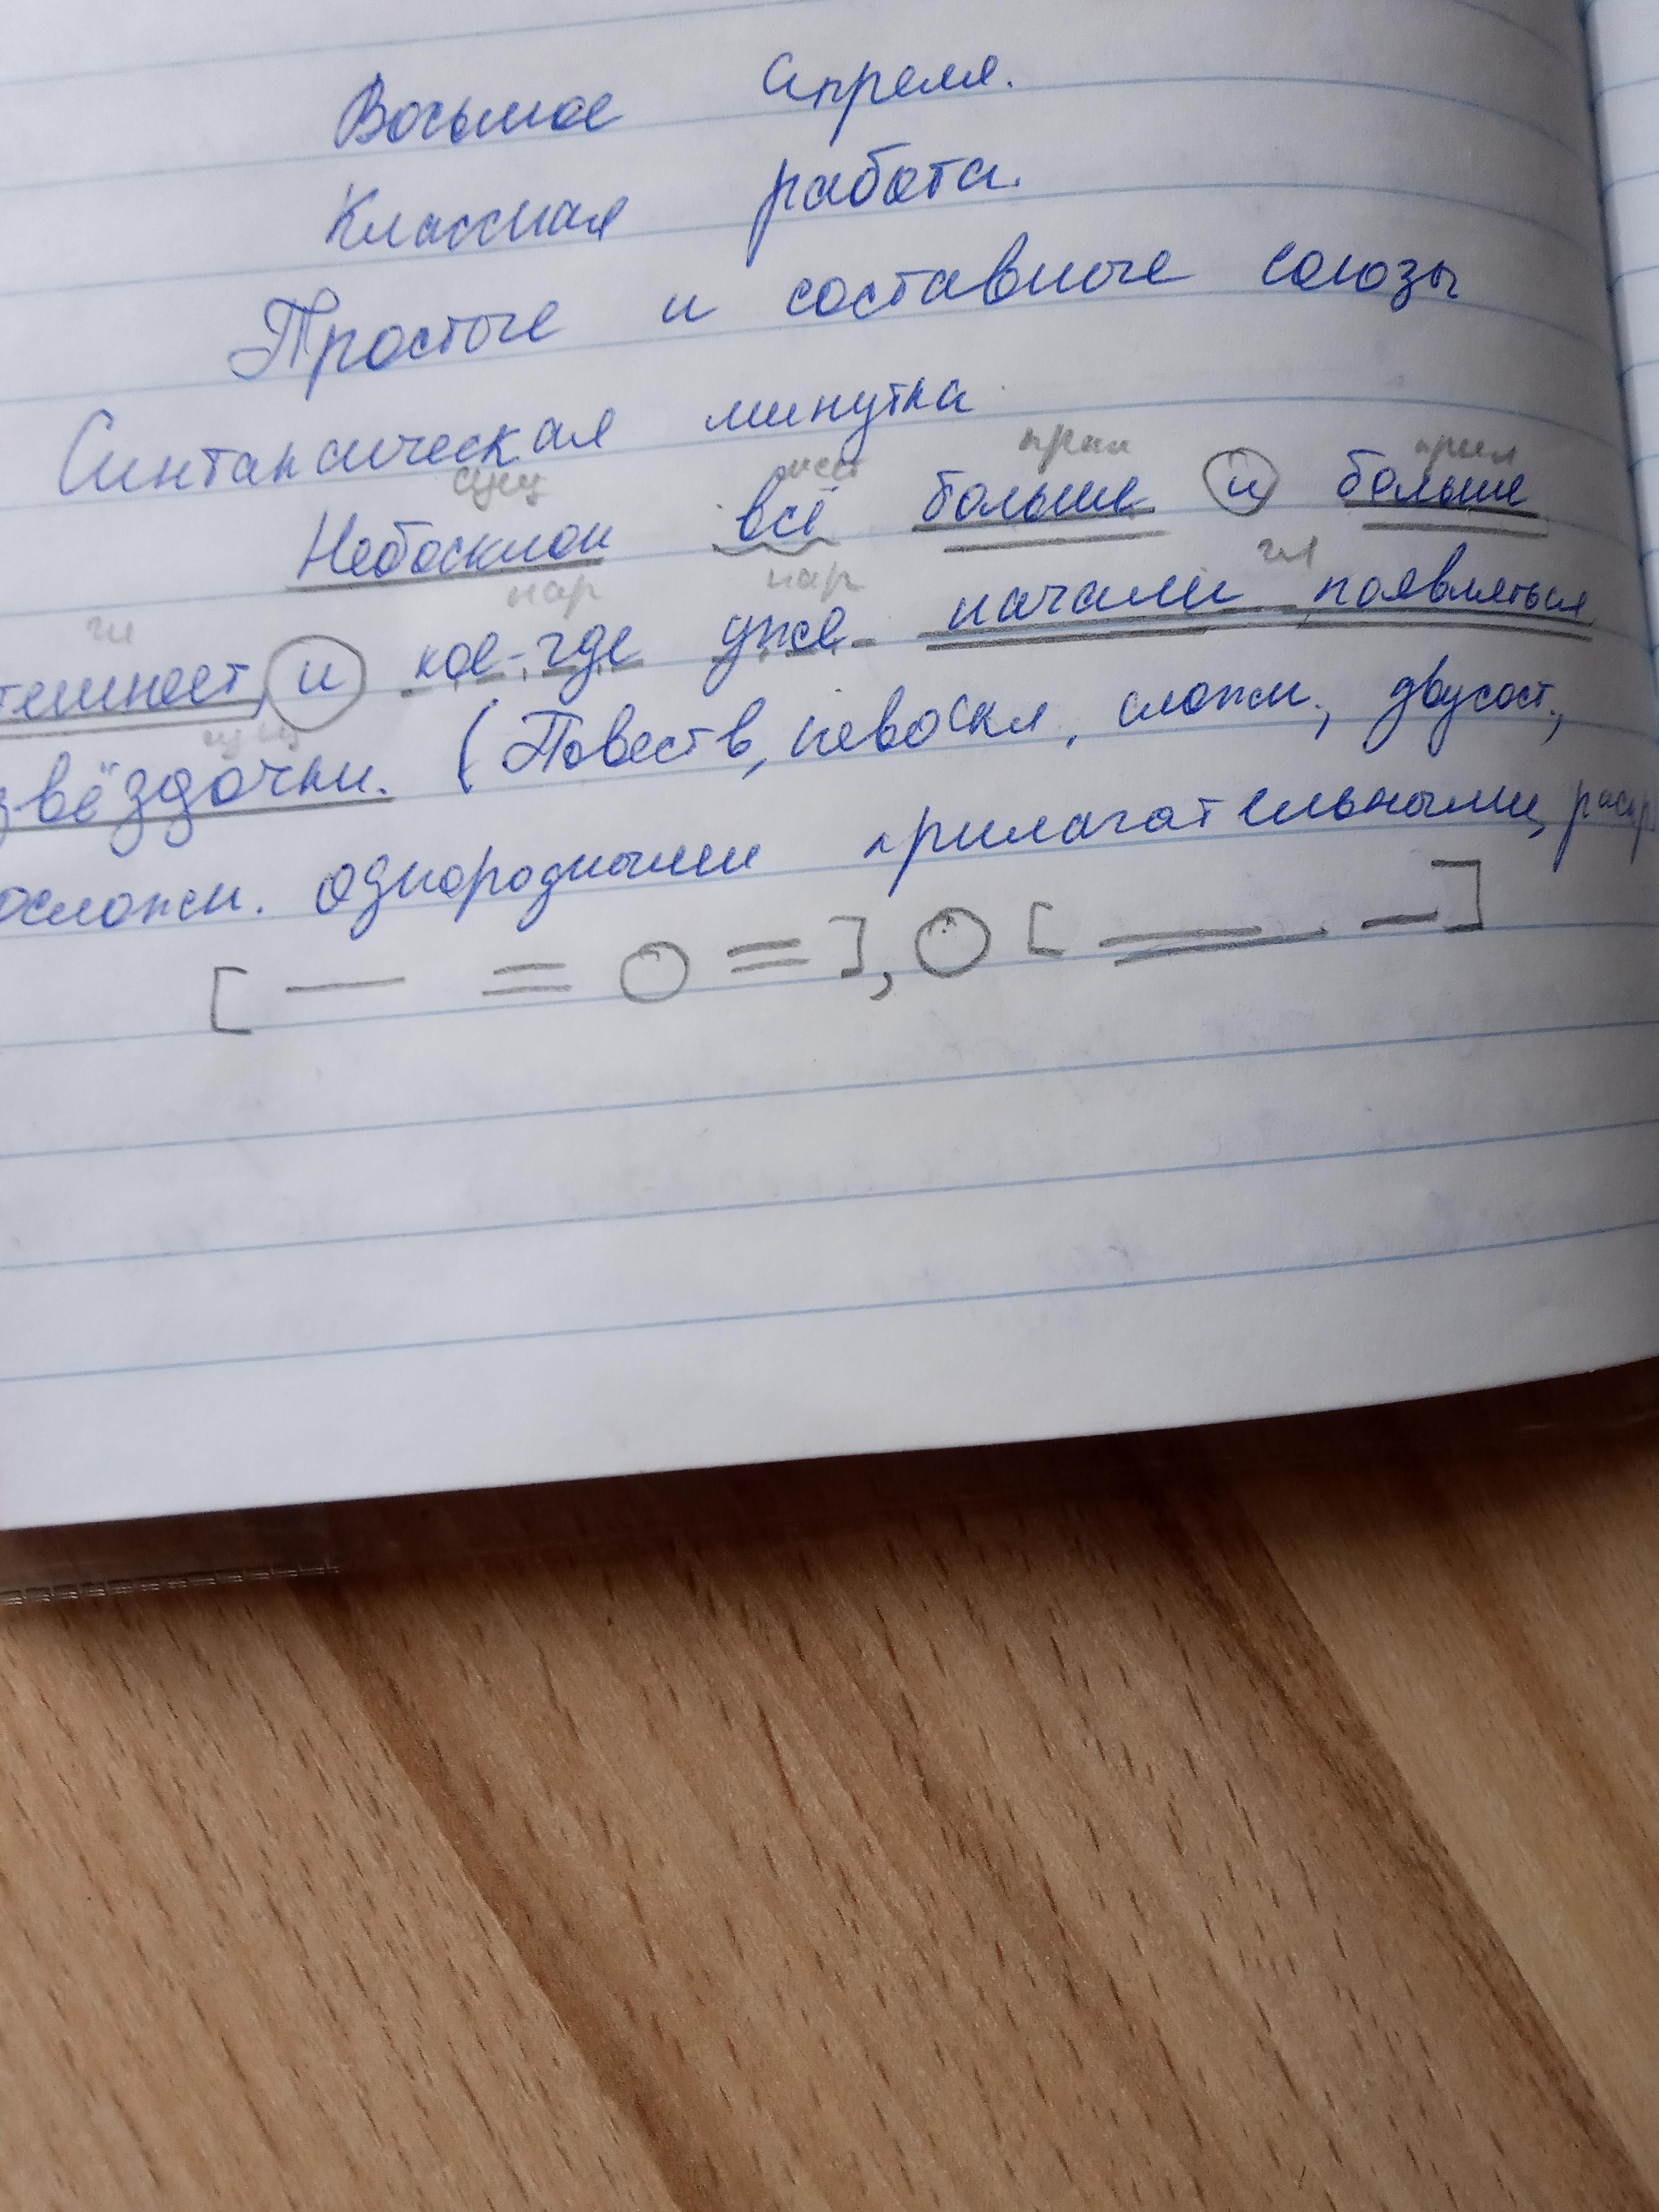 Восьмое Апреля.
Классная работа.
Простые и составные союзы
Синтаксическая минутка
сущ мест прил прил
Небосклон всё больше и больше
гл нар нар гл
темнеет, и кое-где уже начали появляться
сущ
звёздочки. (Повеств, невоскл, сложн., двусост.,
осложн. однородными прилагательными, распр
[ — = О = ], О [ = — ]